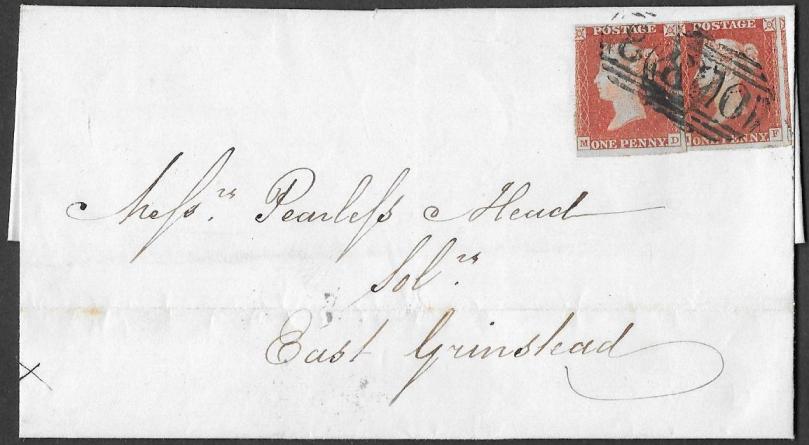 POSTAGE POSTAGE
M ONE PENNY D ONE PENNY. F
Mess.rs Pearless Head
Sol.rs
East Grinstead
X